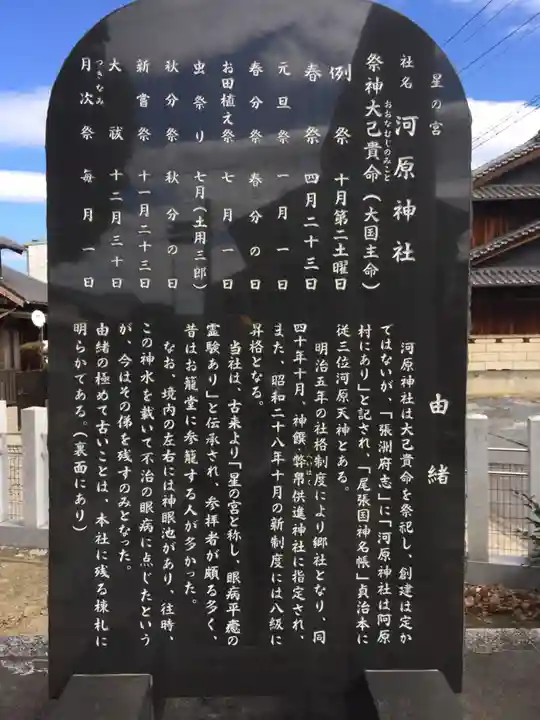 星の宮
社名 河原神社
祭神 大己貴命(大国主命)
おおなむじのみこと
例祭 十月第二土曜日
春祭 四月二十三日
元旦祭 一月一日
春分祭 春分の日
お田植え祭 七月一日
虫祭り 七月(土用三郎)
秋分祭 秋分の日
新嘗祭 十一月二十三日
大祓 十二月三十日
月次祭 毎月一日
つきなみ
由緒
河原神社は大己貴命を祭祀し、創建は定か
ではないが、「張洲府志」に「河原神社は阿原
村にあり」と記され、「尾張国神名帳」貞治本に
従三位河原天神とある。
明治五年の社格制度により郷社となり、同
四十年十月、神饌、弊帛供進神社に指定され、
また、昭和二十八年十月の新制度には八級に
昇格となる。
当社は、古来より「星の宮と称し、眼病平癒の
霊験あり」と伝承され、参拝者が頗る多く、
昔はお籠堂に参籠する人が多かった。
なお、境内の左右には神眼池があり、往時、
この神水を戴いて不治の眼病に点じたという
が、今はその俤を残すのみとなった。
由緒の極めて古いことは、本社に残る棟札に
明らかである。(裏面にあり)